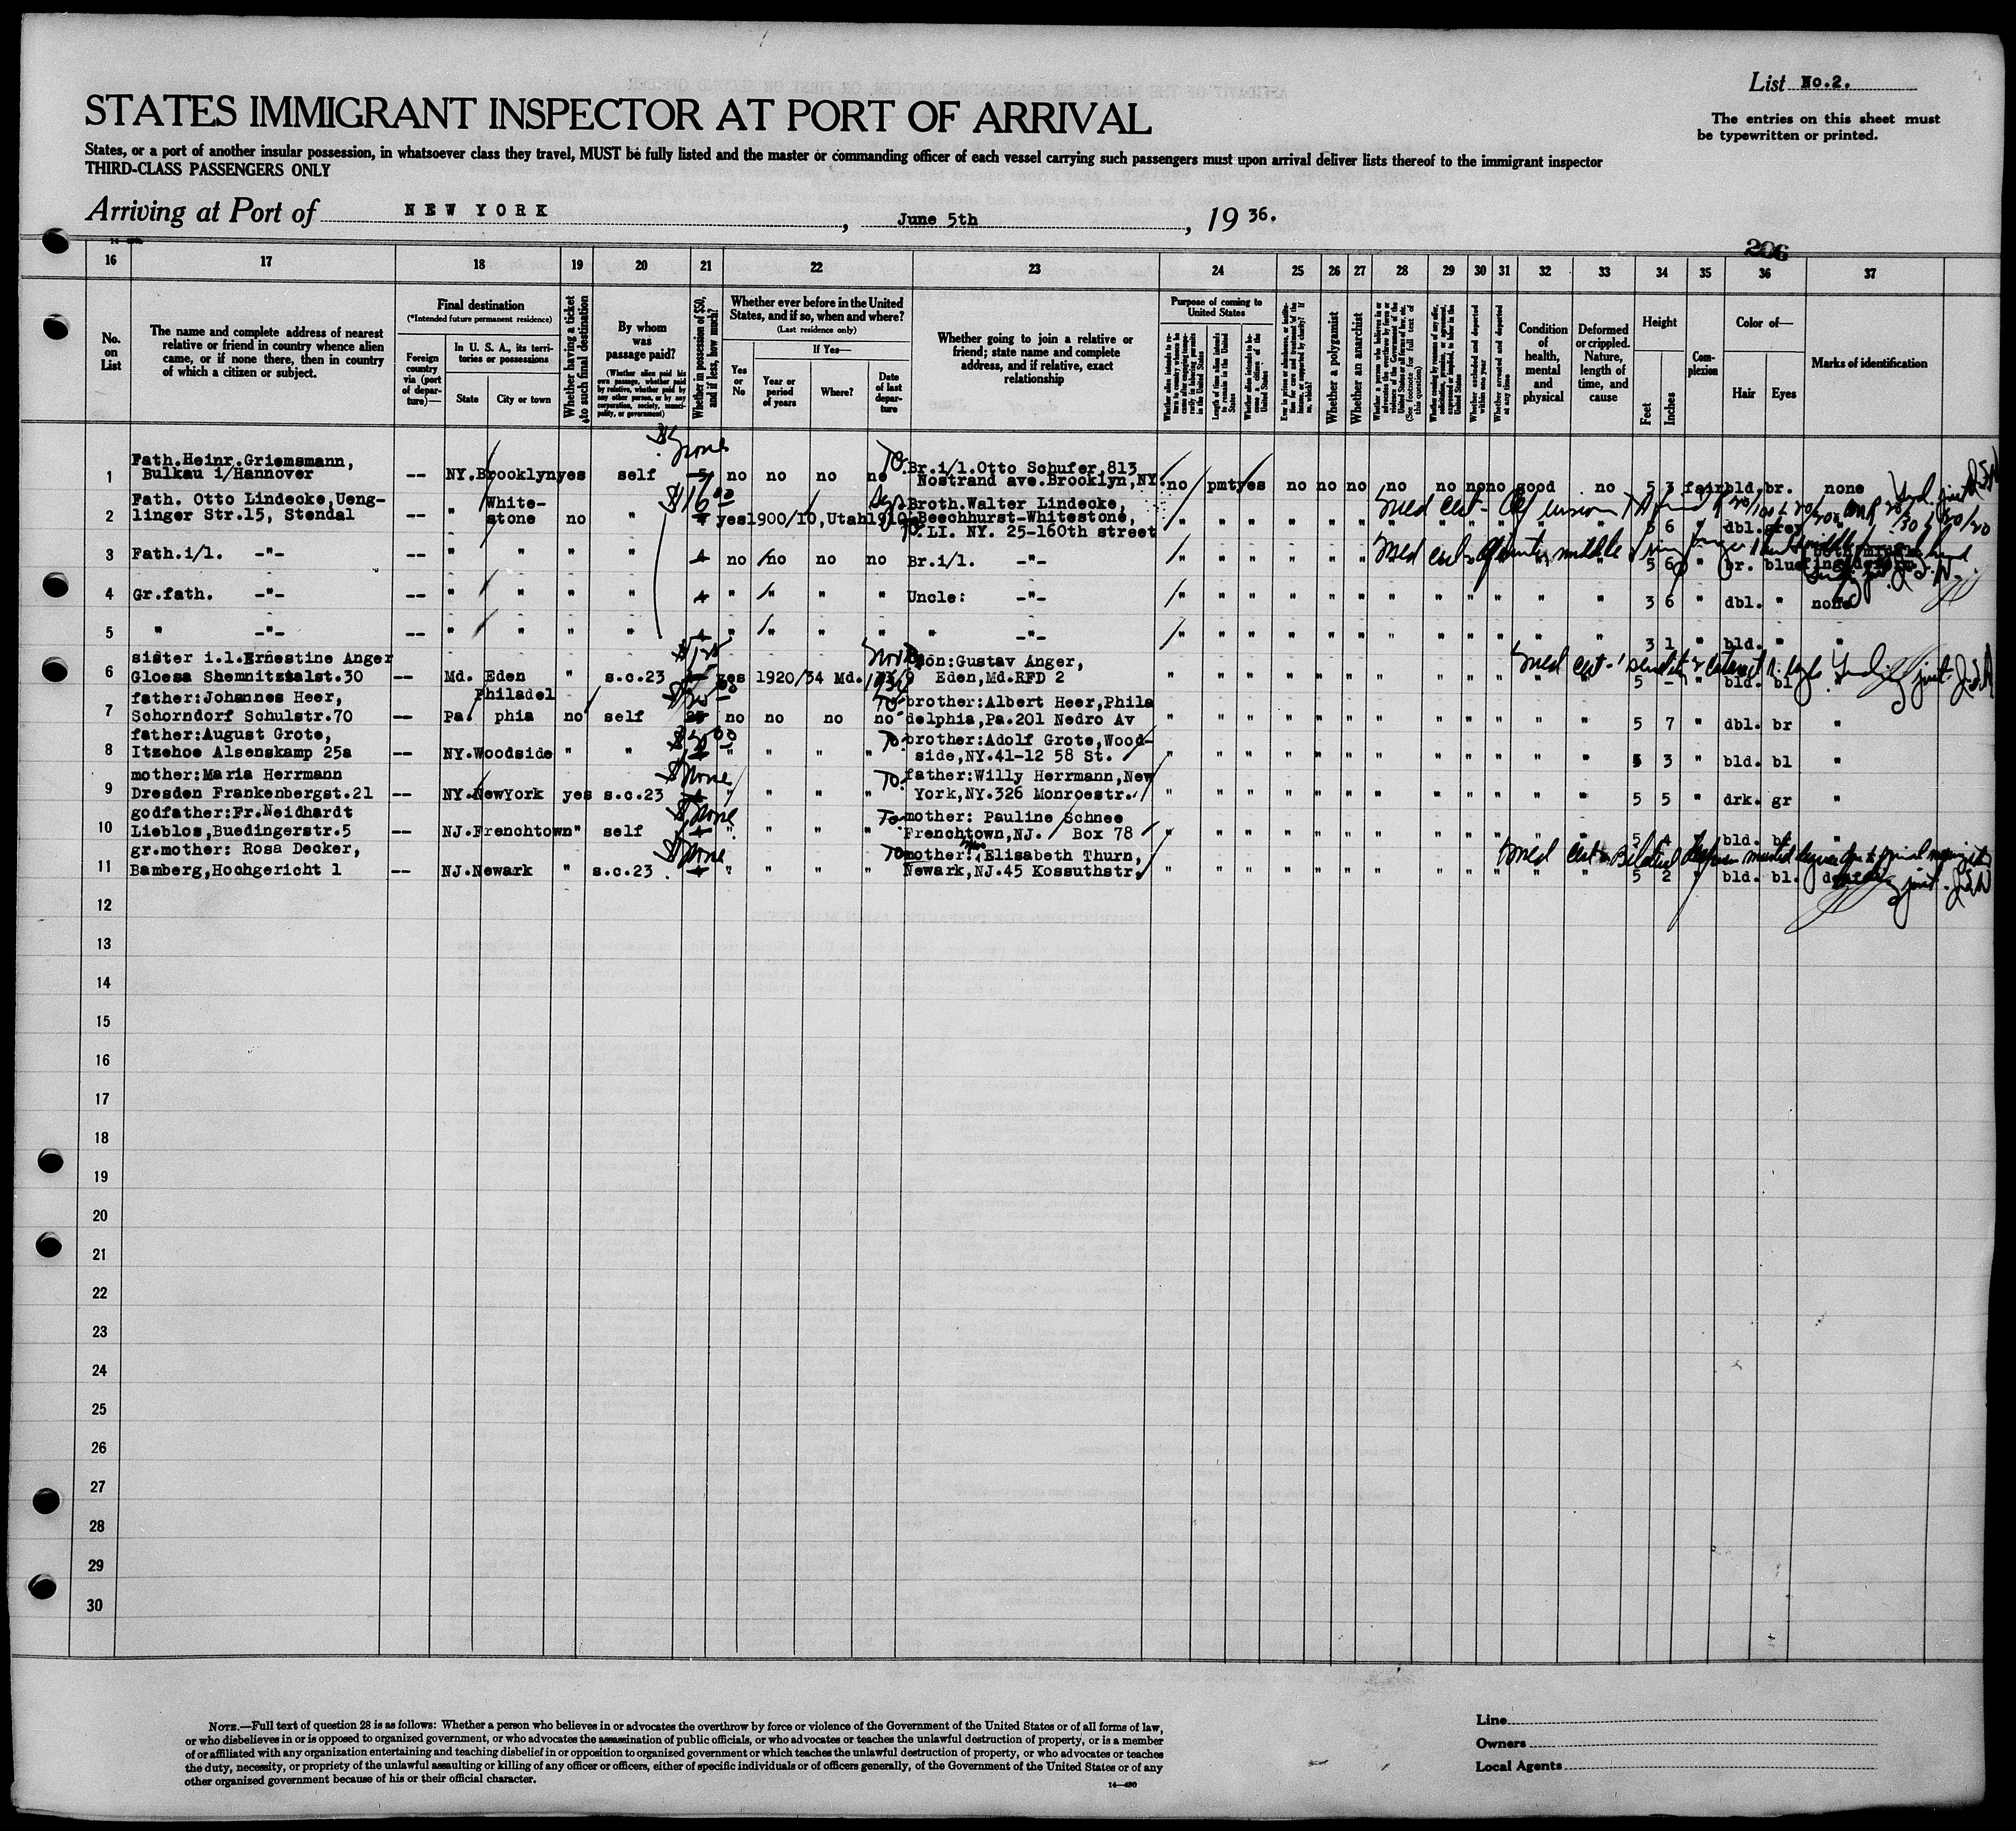 List No.2.
STATES IMMIGRANT INSPECTOR AT PORT OF ARRIVAL
The entries on this sheet must
be typewritten or printed.
States, or a port of another insular possession, in whatsoever class they travel, MUST be fully listed and the master or commanding officer of each vessel carrying such passengers must upon arrival deliver lists thereof to the immigrant inspector
THIRD-CLASS PASSENGERS ONLY
Arriving at Port of NEW YORK, June 5th, 1936.
206
16 17 18 19 20 21 22 23 24 25 26 27 28 29 30 31 32 33 34 35 36 37
No. on List
The name and complete address of nearest relative or friend in country whence alien came, or if none there, then in country of which a citizen or subject.
Final destination
(*Intended future permanent residence)
Foreign country via (port of departure)—
In U. S. A., its territories or possessions
State
City or town
Whether having a ticket to such final destination
By whom was passage paid?
(Whether alien paid his own passage, whether paid by relative, whether paid by any other person, or by any corporation, society, municipality, or government)
Whether in possession of $50, and if less, how much?
Whether ever before in the United States, and if so, when and where?
(Last residence only)
Yes or No
If Yes—
Year or period of years
Where?
Date of last departure
Whether going to join a relative or friend; state name and complete address, and if relative, exact relationship
Purpose of coming to United States
Length of time alien intends to remain in the United States
Whether alien intends to become a citizen of the United States
Whether a polygamist
Whether an anarchist
Whether excluded and deported within one year
Whether arrested and deported at any time
Condition of health, mental and physical
Deformed or crippled. Nature, length of time, and cause
Height
Feet
Inches
Complexion
Color of—
Hair
Eyes
Marks of identification
1 Fath.Heinr.Griemsmann, Bulkau i/Hannover -- NY. Brooklyn yes self $ none no no no no To. Br.i/l.Otto Schufer,813 Nostrand ave.Brooklyn,NY. no pmt yes no no no no no no no good no 5 3 fair bld. br. none
2 Fath. Otto Lindecke,Ueng-linger Str.15, Stendal -- " White-stone no " yes 1900/10, Utah 1910 Broth.Walter Lindecke, Beechhurst-Whitestone, LI. NY. 25-160th street " " " " " " " " " " " " 5 6 " dbl. grey
3 Fath.i/l. -"- -- " " " " no no no no Br.i/l. -"- " " " " " " " " " " " " 5 6 " br. blue
4 Gr.fath. -"- -- " " " " " " " " Uncle: -"- " " " " " " " " " " " " 3 6 " dbl. " none
5 " -"- -- " " " " " " " " " -"- " " " " " " " " " " " " 3 1 " bld. " "
6 sister i.l.Ernestine Anger Gloesa Shemnitztalst.30 -- Md. Eden " s.c.23 yes 1920/34 Md. Son:Gustav Anger, Eden,Md.RFD 2 " " " " " " " " " " " " 5 - " bld. bl
7 father:Johannes Heer, Schorndorf Schulstr.70 -- Pa. Philadelphia no self no no no no To brother:Albert Heer,Philadelphia,Pa.201 Nedro Av " " " " " " " " " " " " 5 7 " dbl. br "
8 father:August Grote, Itzehoe Alsenskamp 25a -- NY. Woodside " " " " " " To. brother:Adolf Grote,Wood-side,NY.41-12 58 St. " " " " " " " " " " " " 5 3 " bld. bl "
9 mother:Maria Herrmann Dresden Frankenbergst.21 -- NY. NewYork yes s.c.23 $ none " " " " To. father:Willy Herrmann,New York,NY.326 Monroestr. " " " " " " " " " " " " 5 5 " drk. gr "
10 godfather:Fr.Neidhardt Lieblos,Buedingerstr.5 -- NJ. Frenchtown " self $ none " " " " To mother: Pauline Schnee Frenchtown,NJ. Box 78 " " " " " " " " " " " " 5 4 " bld. bl "
11 gr.mother: Rosa Decker, Bamberg,Hochgericht 1 -- NJ. Newark " s.c.23 $ none " " " " To mother: Mrs Elisabeth Thurn, Newark,NJ.45 Kossuthstr. " " " " " " " " " " " " 5 2 " bld. bl.
12
13
14
15
16
17
18
19
20
21
22
23
24
25
26
27
28
29
30
NOTE.—Full text of question 28 is as follows: Whether a person who believes in or advocates the overthrow by force or violence of the Government of the United States or of all forms of law,
or who disbelieves in or is opposed to organized government, or who advocates the assassination of public officials, or who advocates or teaches the unlawful destruction of property, or is a member
of or affiliated with any organization entertaining and teaching disbelief in or opposition to organized government or which teaches the unlawful destruction of property, or who advocates or teaches
the duty, necessity, or propriety of the unlawful assaulting or killing of any officer or officers, either of specific individuals or of officers generally, of the Government of the United States or of any
other organized government because of his or their official character.
14—430
Line
Owners
Local Agents